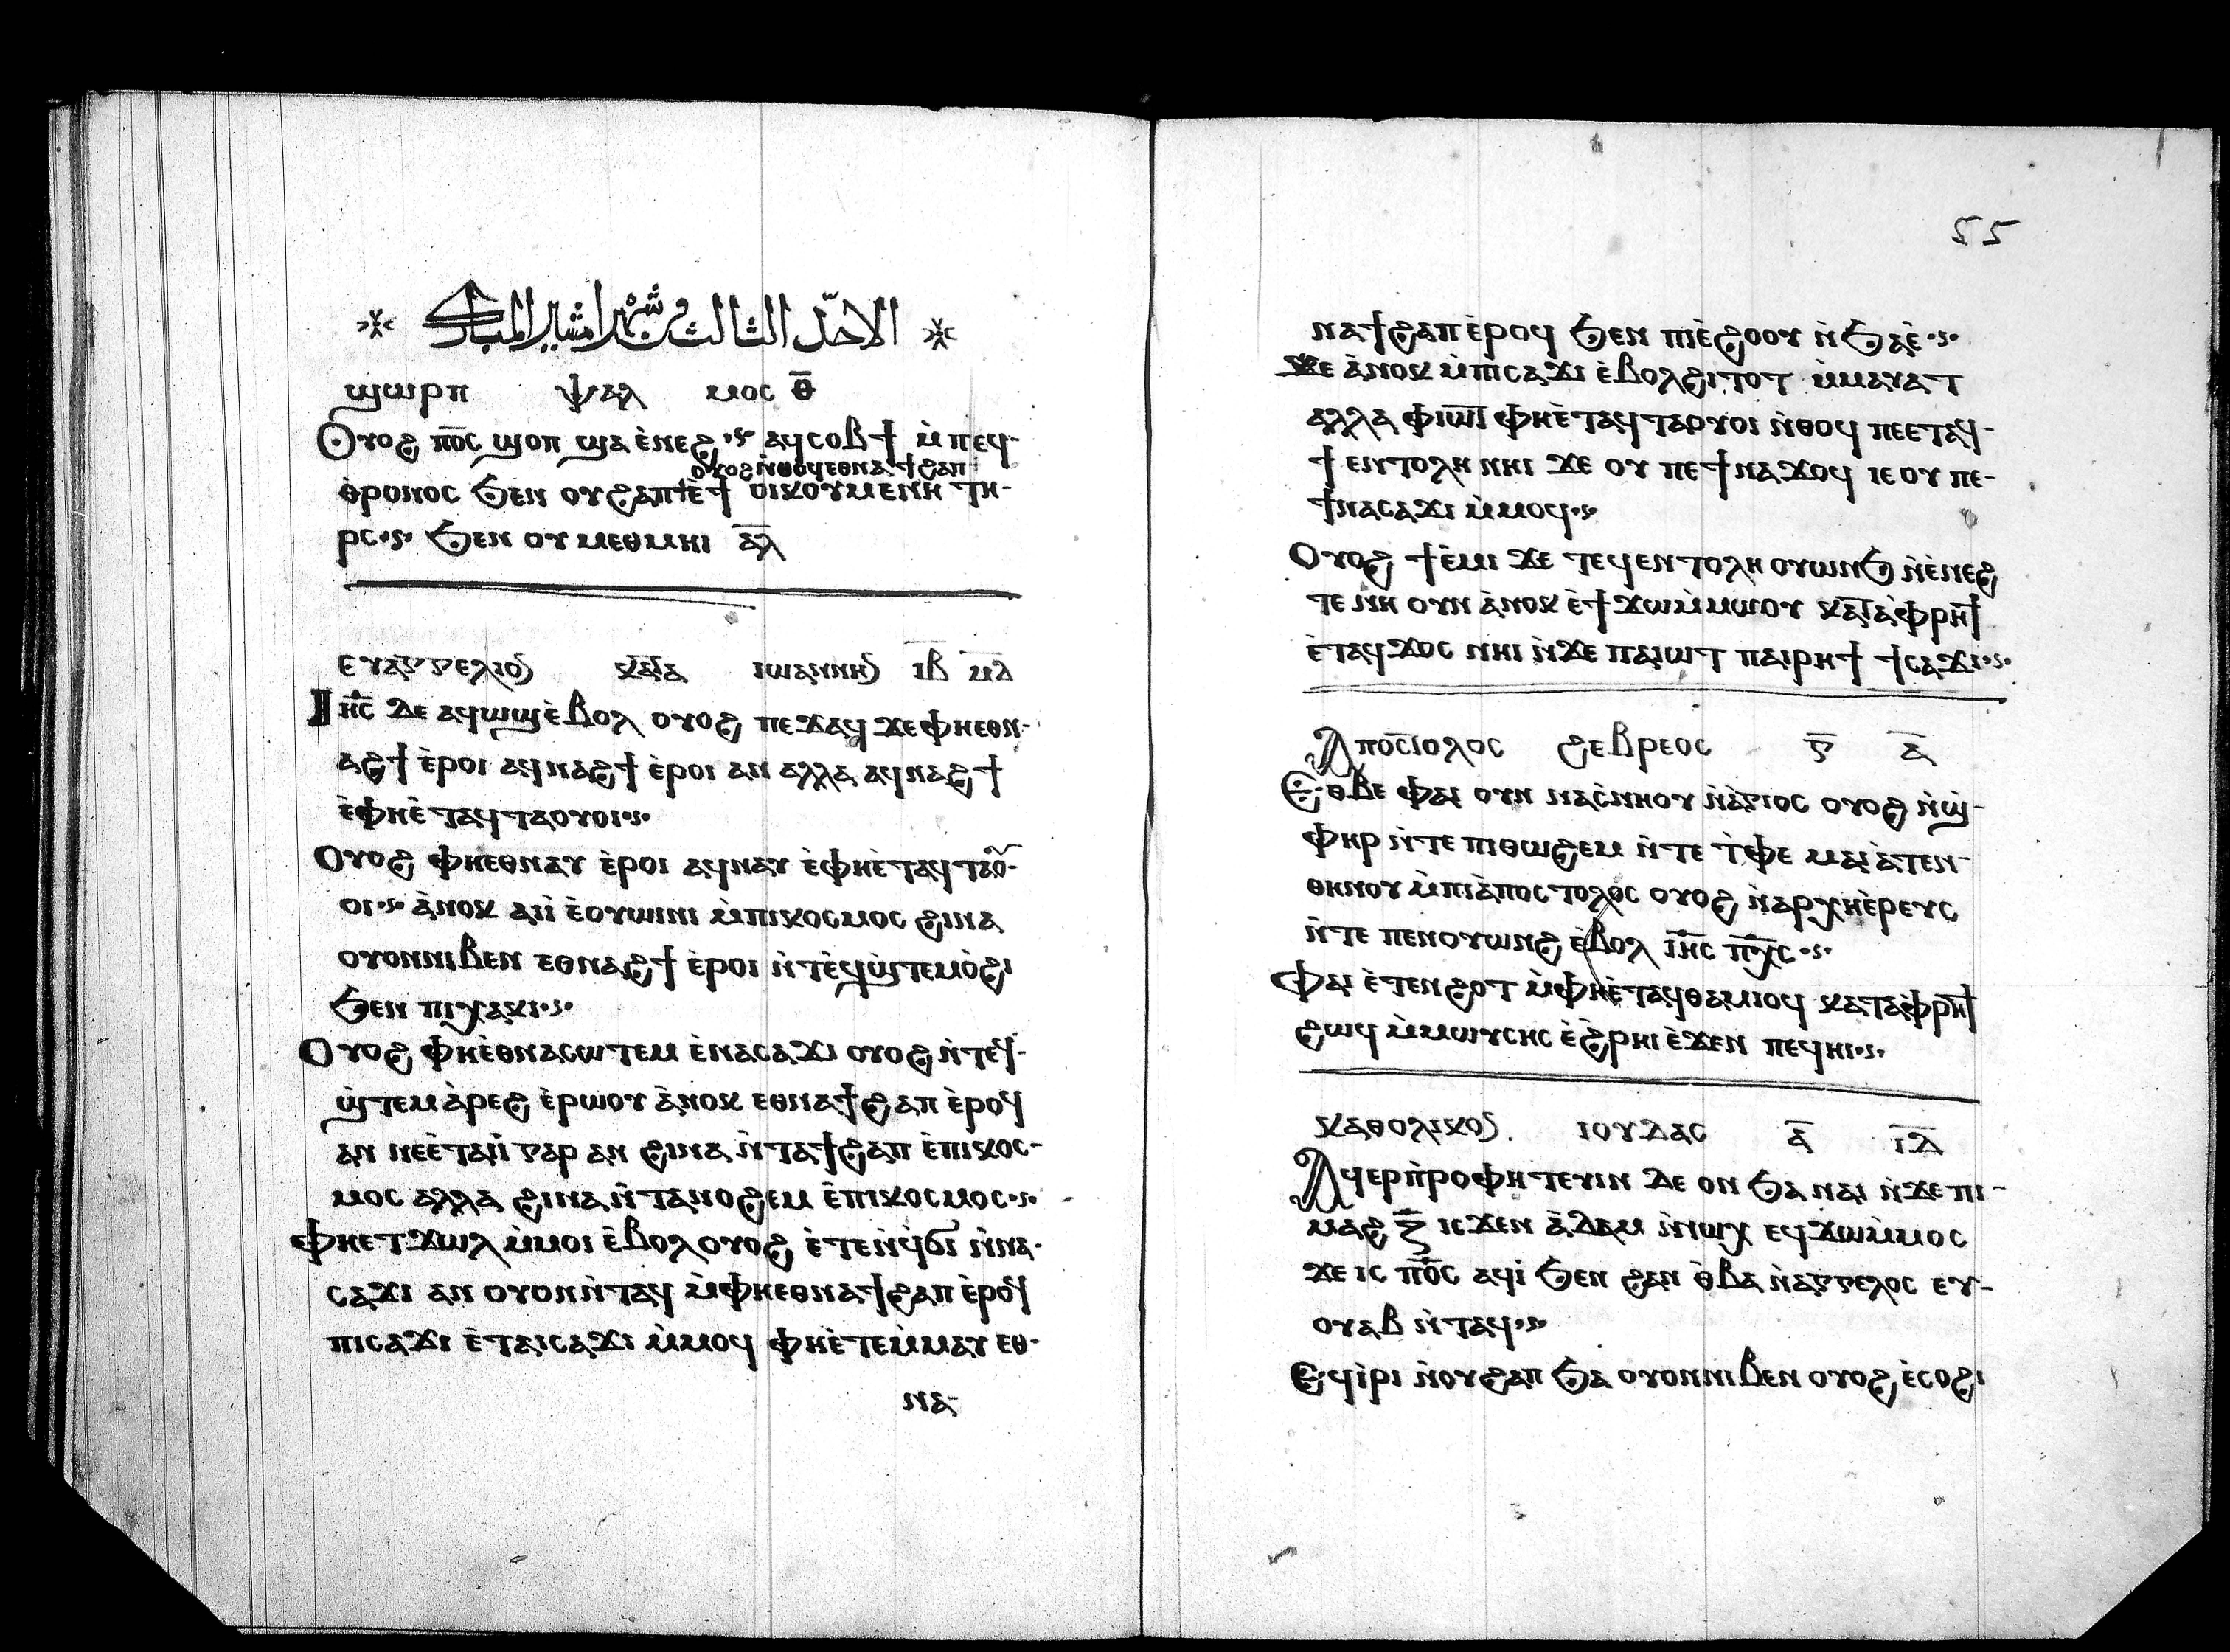 الاحد الثالث من شهر امشير المبارك
ϣⲱⲣⲡ ⲯⲁⲗ ⲙⲟⲥ ⲑ̅
Ⲟⲩⲟϩ ⲡ̅ⲟ̅ⲥ̅ ϣⲟⲡ ϣⲁ ⲉ̀ⲛⲉϩ·ⲋ· ⲁϥⲥⲟⲃϯ ⲙ̀ⲡⲉϥ-
ⲟⲩⲟϩ ⲛ̀ⲑⲟϥ ⲉⲑⲛⲁϯϩⲁⲡ
ⲑ̀ⲣⲟⲛⲟⲥ ϧⲉⲛ ⲟⲩϩⲁⲡ ⲉ̀ϯ ⲟⲓⲕⲟⲩⲙⲉⲛⲏ ⲧⲏ-
ⲣⲥ·ⲋ· ϧⲉⲛ ⲟⲩⲙⲉⲑⲙⲏⲓ ⲁ̅ⲗ̅
ⲉⲩⲁⲅⲅⲉⲗⲓⲟⲛ ⲕⲁⲧⲁ ⲓⲱⲁⲛⲛⲏⲛ ⲓ̅ⲃ̅ ⲙ̅ⲇ̅
Ⲓⲏ̅ⲥ̅ ⲇⲉ ⲁϥⲱϣ ⲉ̀ⲃⲟⲗ ⲟⲩⲟϩ ⲡⲉϫⲁϥ ϫⲉ ⲫⲏⲉⲑⲛ-
ⲁϩϯ ⲉ̀ⲣⲟⲓ ⲁϥⲛⲁϩϯ ⲉ̀ⲣⲟⲓ ⲁⲛ ⲁⲗⲗⲁ ⲁϥⲛⲁϩϯ
ⲉ̀ⲫⲏⲉ̀ⲧⲁϥⲧⲁⲟⲩⲟⲓ·ⲋ·
Ⲟⲩⲟϩ ⲫⲏⲉⲑⲛⲁⲩ ⲉ̀ⲣⲟⲓ ⲁϥⲛⲁⲩ ⲉ̀ⲫⲏⲉ̀ⲧⲁϥⲧⲁⲟⲩ-
ⲟⲓ·ⲋ· ⲁ̀ⲛⲟⲕ ⲁⲓⲓ̀ ⲉ̀ⲟⲩⲱⲓⲛⲓ ⲙ̀ⲡⲓⲕⲟⲥⲙⲟⲥ ϩⲓⲛⲁ
ⲟⲩⲟⲛⲛⲓⲃⲉⲛ ⲉⲑⲛⲁϩϯ ⲉ̀ⲣⲟⲓ ⲛ̀ⲧⲉϥϣ̀ⲧⲉⲙⲟ̀ϩⲓ
ϧⲉⲛ ⲡⲓⲭⲁⲕⲓ·ⲋ·
Ⲟⲩⲟϩ ⲫⲏⲉ̀ⲑⲛⲁⲥⲱⲧⲉⲙ ⲉ̀ⲛⲁⲥⲁϫⲓ ⲟⲩⲟϩ ⲛ̀ⲧⲉϥ-
ϣ̀ⲧⲉⲙⲁ̀ⲣⲉϩ ⲉ̀ⲣⲱⲟⲩ ⲁ̀ⲛⲟⲕ ⲉⲑⲛⲁϯϩⲁⲡ ⲉ̀ⲣⲟϥ
ⲁⲛ ⲛⲉⲉ̀ⲧⲁⲓⲓ̀ ⲅⲁⲣ ⲁⲛ ϩⲓⲛⲁ ⲛ̀ⲧⲁϯϩⲁⲡ ⲉ̀ⲡⲓⲕⲟⲥ-
ⲙⲟⲥ ⲁⲗⲗⲁ ϩⲓⲛⲁ ⲛ̀ⲧⲁⲛⲟϩⲉⲙ ⲉ̀ⲡⲓⲕⲟⲥⲙⲟⲥ·ⲋ·
ⲫⲏⲉⲧϫⲱⲗ ⲙ̀ⲙⲟⲓ ⲉ̀ⲃⲟⲗ ⲟⲩⲟϩ ⲉ̀ⲧⲉⲛ̀ϥϭⲓ ⲛ̀ⲛⲁ-
ⲥⲁϫⲓ ⲁⲛ ⲟⲩⲟⲛⲛ̀ⲧⲁϥ ⲙ̀ⲫⲏⲉⲑⲛⲁϯϩⲁⲡ ⲉ̀ⲣⲟϥ
ⲡⲓⲥⲁϫⲓ ⲉ̀ⲧⲁⲓⲥⲁϫⲓ ⲙ̀ⲙⲟϥ ⲫⲏⲉ̀ⲧⲉⲙ̀ⲙⲁⲩ ⲉⲑ-
ⲛⲁ-
55
ⲛⲁϯϩⲁⲡ ⲉ̀ⲣⲟϥ ϧⲉⲛ ⲡⲓⲉ̀ϩⲟⲟⲩ ⲛ̀ϧⲁⲉ̀·ⲋ·
ϫⲉ ⲁ̀ⲛⲟⲕ ⲙ̀ⲡⲓⲥⲁϫⲓ ⲉ̀ⲃⲟⲗϩⲓⲧⲟⲧ ⲙ̀ⲙⲁⲩⲁⲧ
ⲁⲗⲗⲁ ⲫⲓⲱⲧ ⲫⲏⲉ̀ⲧⲁϥⲧⲁⲟⲩⲟⲓ ⲛ̀ⲑⲟϥ ⲡⲉⲉⲧⲁϥ-
ϯ ⲉⲛⲧⲟⲗⲏ ⲛⲏⲓ ϫⲉ ⲟⲩ ⲡⲉϯⲛⲁϫⲟϥ ⲓⲉ ⲟⲩ ⲡⲉ-
ϯⲛⲁⲥⲁϫⲓ ⲙ̀ⲙⲟϥ·ⲋ·
Ⲟⲩⲟϩ ϯⲉ̀ⲙⲓ ϫⲉ ⲧⲉϥⲉⲛⲧⲟⲗⲏ ⲟⲩⲱⲛϧ ⲛ̀ⲉ̀ⲛⲉϩ
ⲧⲉ ⲛⲏ ⲟⲩⲛ ⲁ̀ⲛⲟⲕ ⲉ̀ϯϫⲱⲙ̀ⲙⲱⲟⲩ ⲕⲁⲧⲁⲫⲣⲏϯ
ⲉ̀ⲧⲁϥϫⲟⲥ ⲛⲏⲓ ⲛ̀ϫⲉ ⲡⲁⲓⲱⲧ ⲡⲁⲓⲣⲏϯ ϯⲥⲁϫⲓ·ⲋ·
Ⲁⲡⲟⲥⲧⲟⲗⲟⲥ ϩⲉⲃⲣⲉⲟⲥ ⲅ̅ ⲁ̅
Ⲉⲑⲃⲉ ⲫⲁⲓ ⲟⲩⲛ ⲛⲁⲥⲛⲏⲟⲩ ⲛ̀ⲁ̀ⲅⲓⲟⲥ ⲟⲩⲟϩ ⲛ̀ϣ̀-
ⲫⲏⲣ ⲛ̀ⲧⲉ ⲡⲓⲑⲱϩⲉⲙ ⲛ̀ⲧⲉ ⲧ̀ⲫⲉ ⲙⲁⲓⲁ̀ⲧⲉⲛ-
ⲑⲏⲛⲟⲩ ⲙ̀ⲡⲓⲁ̀ⲡⲟⲥⲧⲟⲗⲟⲥ ⲟⲩⲟϩ ⲛ̀ⲁⲣⲭⲏⲉ̀ⲣⲉⲩⲥ
ⲛ̀ⲧⲉ ⲡⲉⲛⲟⲩⲱⲛϩ ⲉ̀ⲃⲟⲗ ⲓ̅ⲏ̅ⲥ̅ ⲡ̅ⲭ̅ⲥ̅·ⲋ·
Ⲫⲁⲓ ⲉ̀ⲧⲉⲛϩⲟⲧ ⲙ̀ⲫⲏⲉ̀ⲧⲁϥⲑⲁⲙⲓⲟϥ ⲕⲁⲧⲁⲫⲣⲏϯ
ϩⲱϥ ⲙ̀ⲙⲱⲩⲥⲏⲥ ⲉ̀ϩ̀ⲣⲏⲓ ⲉ̀ϫⲉⲛ ⲡⲉϥⲏⲓ·ⲋ·
ⲕⲁⲑⲟⲗⲓⲕⲟⲛ ⲓⲟⲩⲇⲁⲥ ⲁ̅ ⲓ̅ⲇ̅
Ⲁϥⲉⲣⲡ̀ⲣⲟⲫⲏⲧⲉⲩⲓⲛ ⲇⲉ ⲟⲛ ϧⲁ ⲛⲁⲓ ⲛ̀ϫⲉ ⲡⲓ-
ⲙⲁϩ ⲍ̅ ⲓⲥϫⲉⲛ ⲁ̀ⲇⲁⲙ ⲉ̀ⲛⲱⲭ ⲉϥϫⲱⲙ̀ⲙⲟⲥ
ϫⲉ ⲓⲥ ⲡ̅ⲟ̅ⲥ̅ ⲁϥⲓ̀ ϧⲉⲛ ϩⲁⲛ ⲑ̀ⲃⲁ ⲛ̀ⲁⲅⲅⲉⲗⲟⲥ ⲉⲩ-
ⲟⲩⲁⲃ ⲛ̀ⲧⲁϥ·ⲋ·
Ⲉϥⲓ̀ⲣⲓ ⲛ̀ⲟⲩϩⲁⲡ ϧⲁ ⲟⲩⲟⲛⲛⲓⲃⲉⲛ ⲟⲩⲟϩ ⲉ̀ⲥⲟϩⲓ